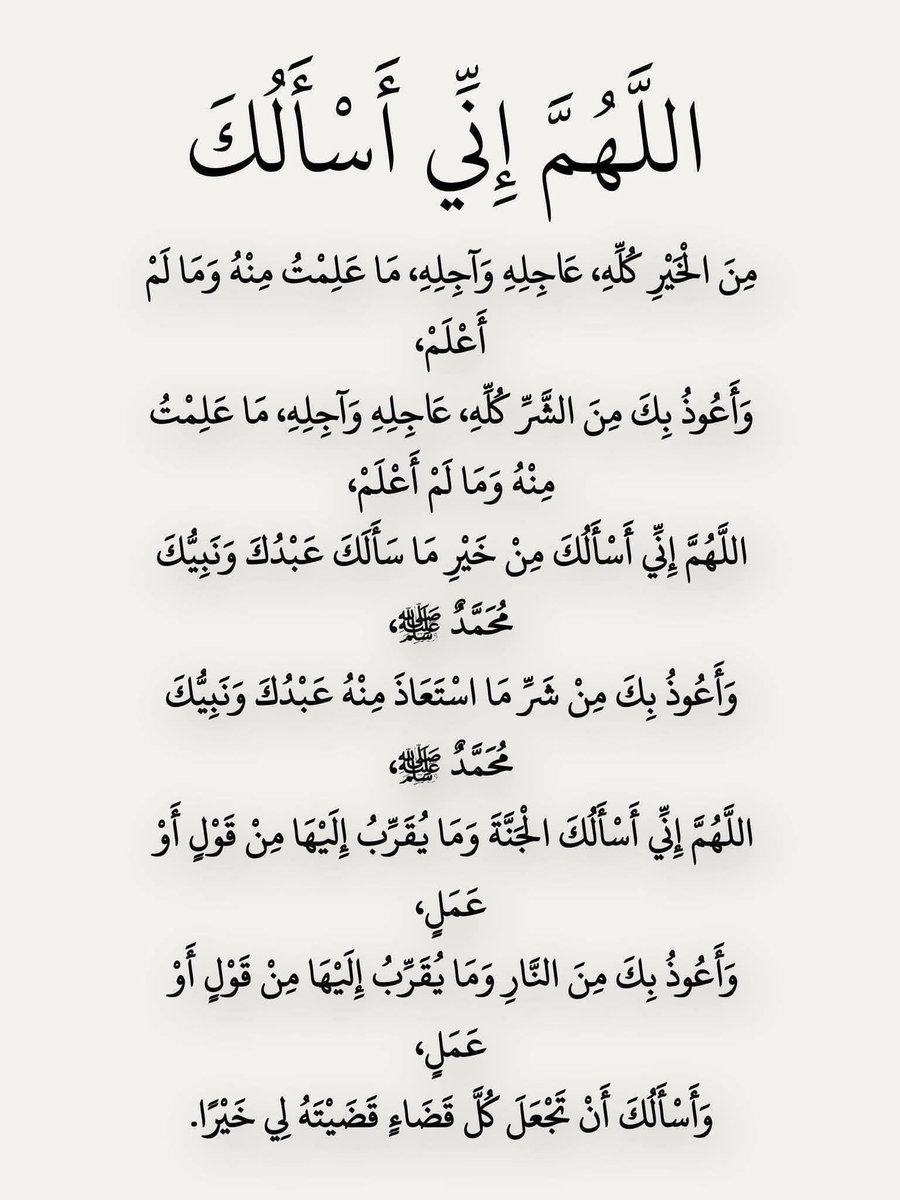 اللَّهُمَّ إِنِّي أَسْأَلُكَ
مِنَ الْخَيْرِ كُلِّهِ، عَاجِلِهِ وَآجِلِهِ، مَا عَلِمْتُ مِنْهُ وَمَا لَمْ
أَعْلَمْ،
وَأَعُوذُ بِكَ مِنَ الشَّرِّ كُلِّهِ، عَاجِلِهِ وَآجِلِهِ، مَا عَلِمْتُ
مِنْهُ وَمَا لَمْ أَعْلَمْ،
اللَّهُمَّ إِنِّي أَسْأَلُكَ مِنْ خَيْرِ مَا سَأَلَكَ عَبْدُكَ وَنَبِيُّكَ
مُحَمَّدٌ ﷺ،
وَأَعُوذُ بِكَ مِنْ شَرِّ مَا اسْتَعَاذَ مِنْهُ عَبْدُكَ وَنَبِيُّكَ
مُحَمَّدٌ ﷺ،
اللَّهُمَّ إِنِّي أَسْأَلُكَ الْجَنَّةَ وَمَا يُقَرِّبُ إِلَيْهَا مِنْ قَوْلٍ أَوْ
عَمَلٍ،
وَأَعُوذُ بِكَ مِنَ النَّارِ وَمَا يُقَرِّبُ إِلَيْهَا مِنْ قَوْلٍ أَوْ
عَمَلٍ،
وَأَسْأَلُكَ أَنْ تَجْعَلَ كُلَّ قَضَاءٍ قَضَيْتَهُ لِي خَيْرًا.